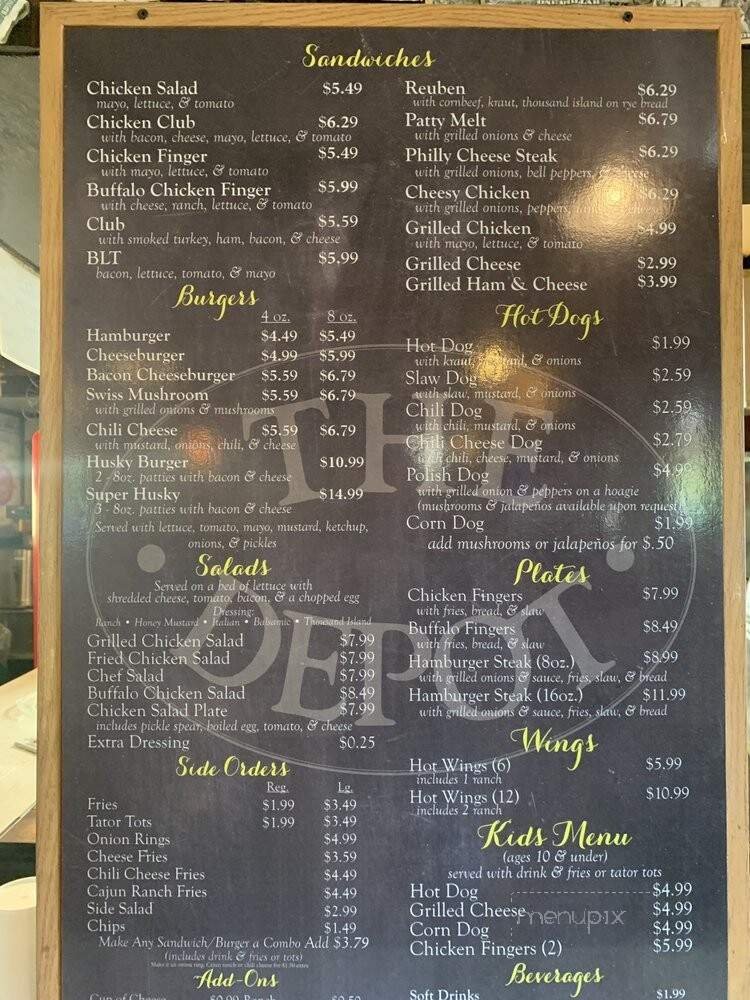 Sandwiches
Chicken Salad $5.49
mayo, lettuce, & tomato
Chicken Club $6.29
with bacon, cheese, mayo, lettuce, & tomato
Chicken Finger $5.49
with mayo, lettuce, & tomato
Buffalo Chicken Finger $5.99
with cheese, ranch, lettuce, & tomato
Club $5.59
with smoked turkey, ham, bacon, & cheese
BLT $5.99
bacon, lettuce, tomato, & mayo
Reuben $6.29
with cornbeef, kraut, thousand island on rye bread
Patty Melt $6.79
with grilled onions & cheese
Philly Cheese Steak $6.29
with grilled onions, bell peppers, & cheese
Cheesy Chicken $6.29
with grilled onions, peppers,
Grilled Chicken $4.99
with mayo, lettuce, & tomato
Grilled Cheese $2.99
Grilled Ham & Cheese $3.99
Burgers
4 oz. 8 oz.
Hamburger $4.49 $5.49
Cheeseburger $4.99 $5.99
Bacon Cheeseburger $5.59 $6.79
Swiss Mushroom $5.59 $6.79
with grilled onions & mushrooms
Chili Cheese $5.59 $6.79
with mustard, onions, chili, & cheese
Husky Burger $10.99
2 - 8oz. patties with bacon & cheese
Super Husky $14.99
3 - 8oz. patties with bacon & cheese
Served with lettuce, tomato, mayo, mustard, ketchup,
onions, & pickles
Hot Dogs
Hot Dog $1.99
with kraut, mustard, & onions
Slaw Dog $2.59
with slaw, mustard, & onions
Chili Dog $2.59
with chili, mustard, & onions
Chili Cheese Dog $2.79
with chili, cheese, mustard, & onions
Polish Dog $4.99
with grilled onion & peppers on a hoagie
(mushrooms & jalapeños available upon request)
Corn Dog $1.99
add mushrooms or jalapeños for $.50
THE
DEPOT
Salads
Served on a bed of lettuce with
shredded cheese, tomato, bacon, & a chopped egg
Dressing:
Ranch • Honey Mustard • Italian • Balsamic • Thousand Island
Grilled Chicken Salad $7.99
Fried Chicken Salad $7.99
Chef Salad $7.99
Buffalo Chicken Salad $8.49
Chicken Salad Plate $7.99
includes pickle spear, boiled egg, tomato, & cheese
Extra Dressing $0.25
Plates
Chicken Fingers $7.99
with fries, bread, & slaw
Buffalo Fingers $8.49
with fries, bread, & slaw
Hamburger Steak (8oz.) $8.99
with grilled onions & sauce, fries, slaw, & bread
Hamburger Steak (16oz.) $11.99
with grilled onions & sauce, fries, slaw, & bread
Wings
Hot Wings (6) $5.99
includes 1 ranch
Hot Wings (12) $10.99
includes 2 ranch
Side Orders
Reg. Lg.
Fries $1.99 $3.49
Tator Tots $1.99 $3.49
Onion Rings $4.99
Cheese Fries $3.59
Chili Cheese Fries $4.49
Cajun Ranch Fries $4.49
Side Salad $2.99
Chips $1.49
Make Any Sandwich/Burger a Combo Add $3.79
(includes drink & fries or tots)
Kids Menu
(ages 10 & under)
served with drink & fries or tator tots
Hot Dog $4.99
Grilled Cheese $4.99
Corn Dog $4.99
Chicken Fingers (2) $5.99
menupix
Add-Ons
Cup of Cheese $0.99 Ranch $0.50
Beverages
Soft Drinks $1.99